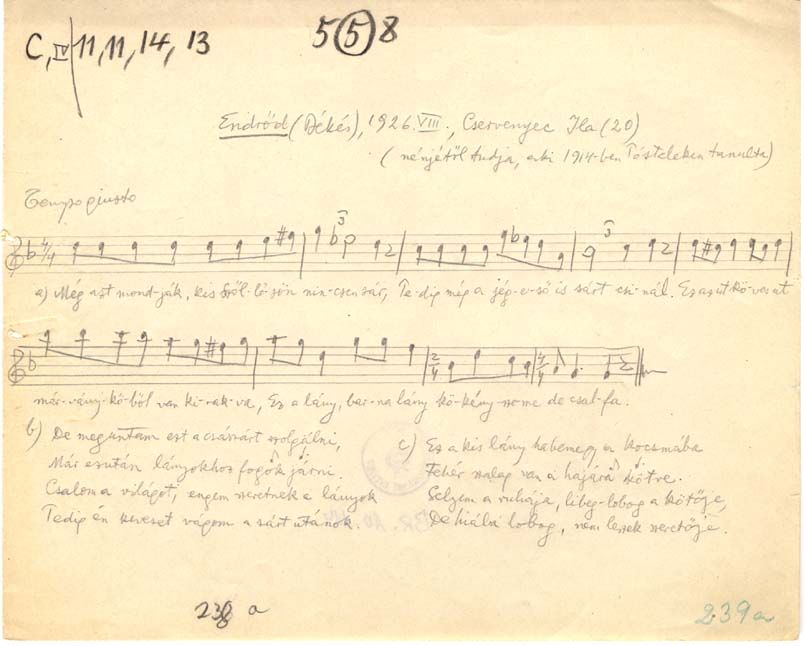 C, IV 11, 11, 14, 13
5 5 8
Endrőd (Békés), 1926. VIII., Cservenyec Ila (20)
(nénjétől tudja, aki 1914-ben Tósteleken tanulta)
Tempo giusto
3
3
4/4
a) Még azt mond-ják, kis Szől-lő-sön nin-csen sár, Te-dig még a jég-e-ső is sárt csi-nál. Ez az út kö-ves út
2/4 4/4
már-vány-kő-ből van ki-rak-va, Ez a lány, bar-na lány kö-kény-szeme de csal-fa.
b) De meguntam ezt a császárt szolgálni,
Már ezután lányokhoz fogok járni.
Csalom a világot, engem szeretnek a lányok
Tedig én keveset vágom a sárt utánok.
c) Ez a kis lány habemegy a kocsmába
Fehér szalag van a hajára kötve.
Selyem a ruhája, libeg-lobog a kötője,
De hiába lobog, nem leszek szeretője.
238 a
239a